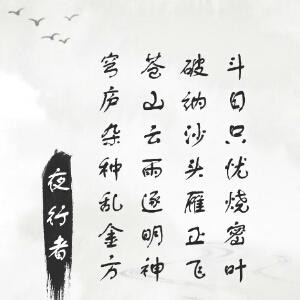 斗目只忧烧密叶
破衲沙头雁正飞
苍山云雨逐明神
穹庐杂种乱金方
夜行者